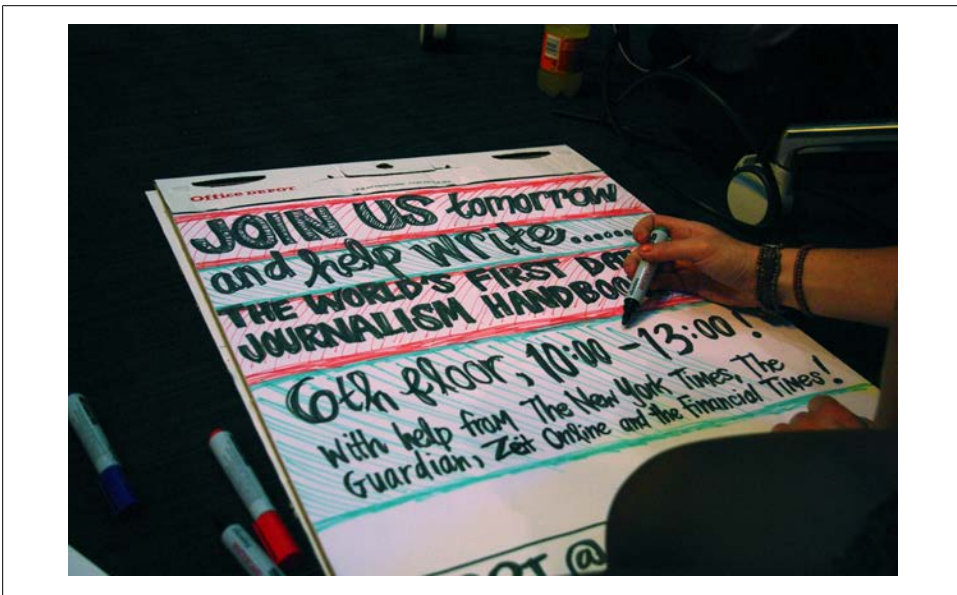 Office DEPOT
JOIN US tomorrow
and help write.......
THE WORLD'S FIRST DA
JOURNALISM HANDBOO
6th floor, 10:00 - 13:00!
With help from The New York Times, The
Guardian, Zeit Online and the Financial Times!